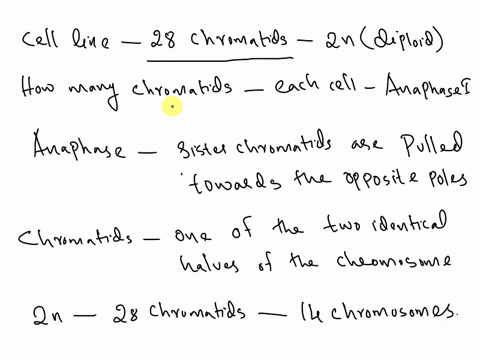 Cell line — 28 chromatids — 2n (diploid)
How many chromatids — each cell — Anaphase I
Anaphase — sister chromatids are pulled
towards the opposite poles
Chromatids — one of the two identical
halves of the cheomosome
2n — 28 chromatids — 14 chromosomes.